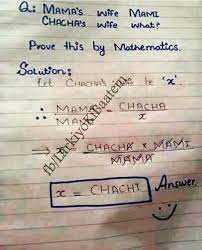 Q: MAMA's WIFE MAMI
CHACHA's WIFE WHAT?
Prove this by Mathematics.
Solution:
Let CHACHA's be 'x'.
∴ MAMA = CHACHA
x
→ x = CHACHA × MAMI
MAMA
x = CHACHI Answer.
fb/LarkiyoKiBaatein